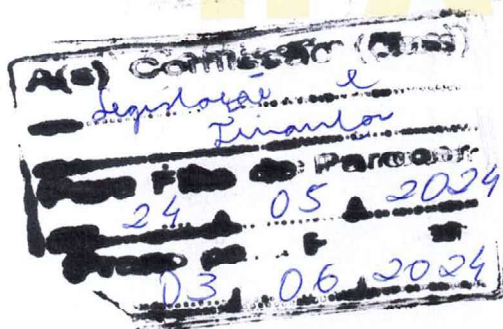 A(s) Comissão (ões)
Legislação e
Finanças
Para Fins de Parecer
24 05 2024
03 06 2024